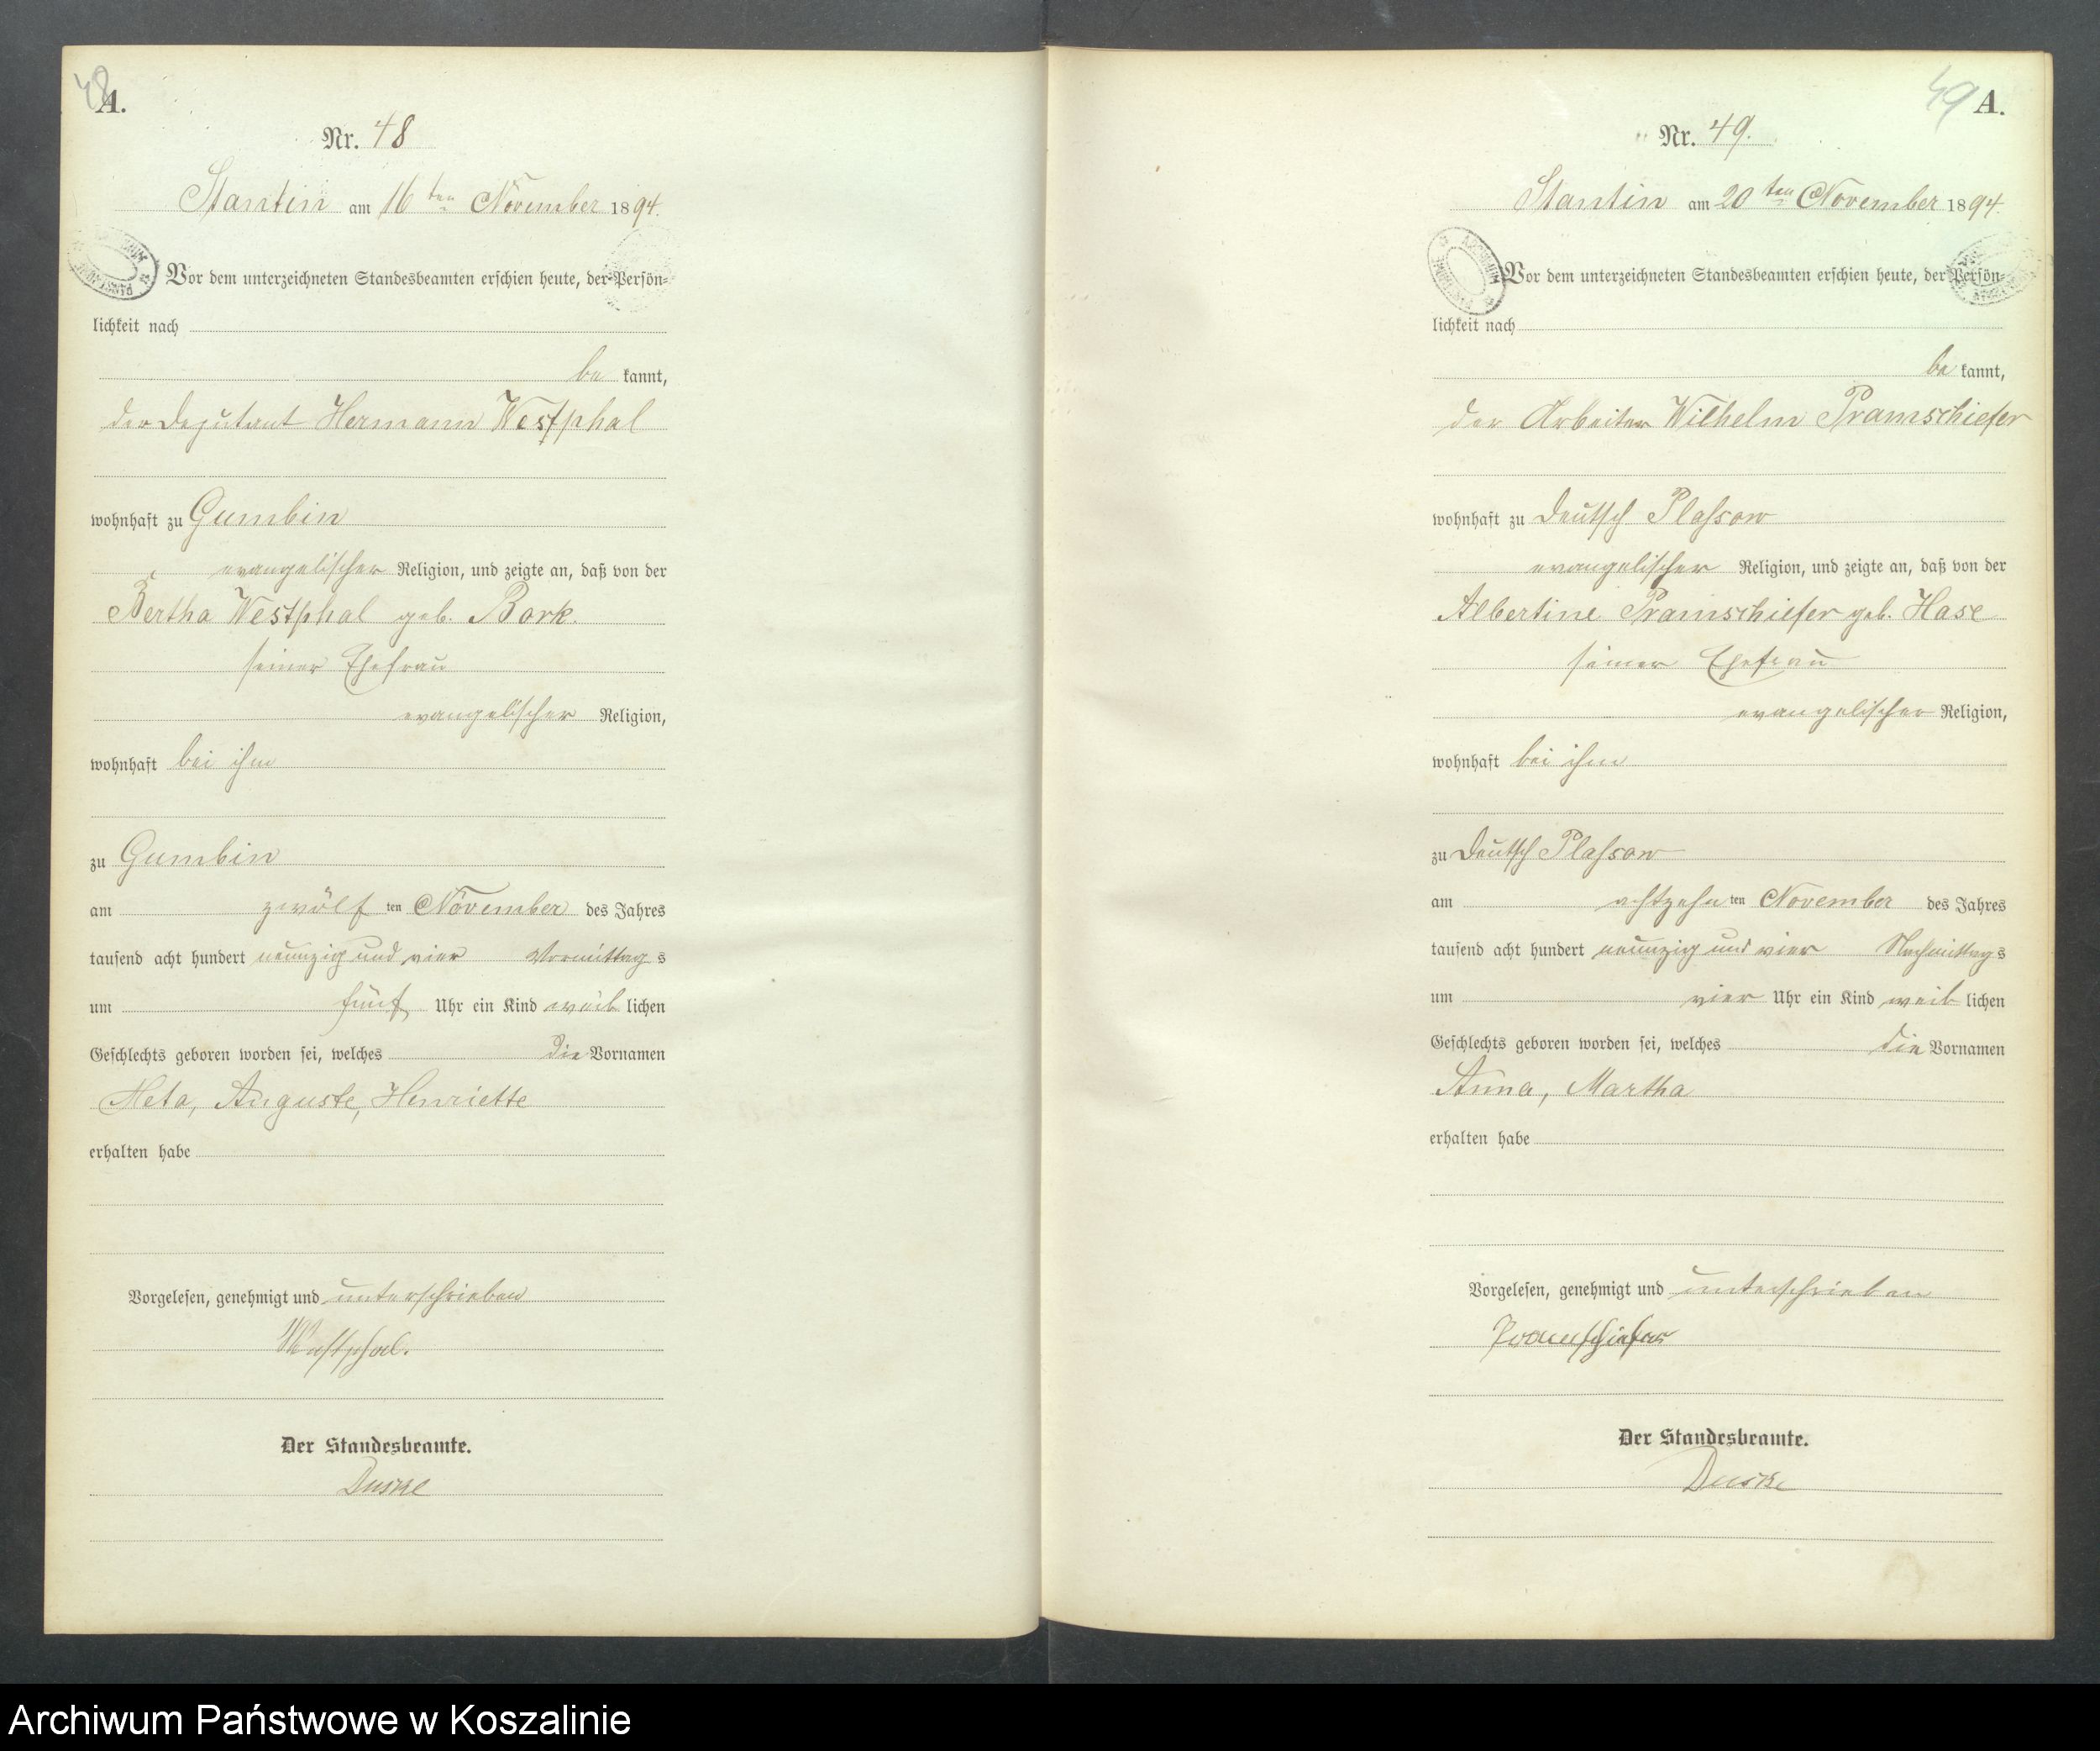 48
A.
Nr. 48
Stantin am 16ten November 1894.
Vor dem unterzeichneten Standesbeamten erschien heute, der Persön-
lichkeit nach
be kannt,
der Deputant Hermann Westphal
wohnhaft zu Gumbin
evangelischer Religion, und zeigte an, daß von der
Bertha Westphal geb. Bork.
seiner Ehefrau
evangelischer Religion,
wohnhaft bei ihm
zu Gumbin
am zwölf ten November des Jahres
tausend acht hundert neunzig und vier Vormittag s
um fünf Uhr ein Kind weib lichen
Geschlechts geboren worden sei, welches die Vornamen
Meta, Auguste, Henriette
erhalten habe
Vorgelesen, genehmigt und unterschrieben
Westphal.
Der Standesbeamte.
Duske
49 A.
Nr. 49.
Stantin am 20ten November 1894.
Vor dem unterzeichneten Standesbeamten erschien heute, der Persön-
lichkeit nach
be kannt,
der Arbeiter Wilhelm Pramschiefer
wohnhaft zu Deutsch Plassow
evangelischer Religion, und zeigte an, daß von der
Albertine Pramschiefer geb. Hase
seiner Ehefrau
evangelischer Religion,
wohnhaft bei ihm
zu Deutsch Plassow
am achtzehn ten November des Jahres
tausend acht hundert neunzig und vier Nachmittag s
um vier Uhr ein Kind weib lichen
Geschlechts geboren worden sei, welches die Vornamen
Anna, Martha
erhalten habe
Vorgelesen, genehmigt und unterschrieben
Pramschiefer
Der Standesbeamte.
Duske
Archiwum Państwowe w Koszalinie